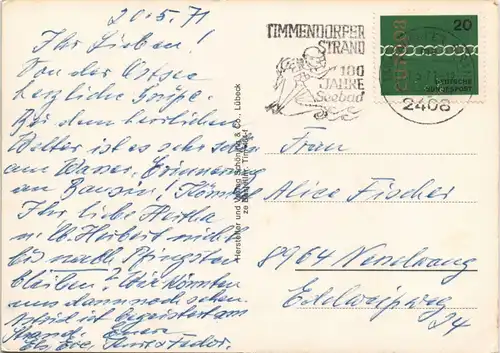 20.5.71
Ihr Lieben!
Von der Ostsee
herzliche Grüße.
Bei dem herrlichen
Wetter ist es sehr schön
am Wasser. Erinnerung
an Bansin!
Ihr, liebe Hertha
u. lb. Herbert nicht
bis nach Pfingsten
bleiben? Wir könnten
uns dann noch sehen.
ist begeistert am
Strand. Euere
TIMMENDORFER
STRAND
100
JAHRE
Seebad
2408
EUROPA
20
DEUTSCHE
BUNDESPOST
Hersteller und Verlag Schöning & Co., Lübeck
Frau
Alice Fischer
8964 Nesselwang
Edelweißweg
24